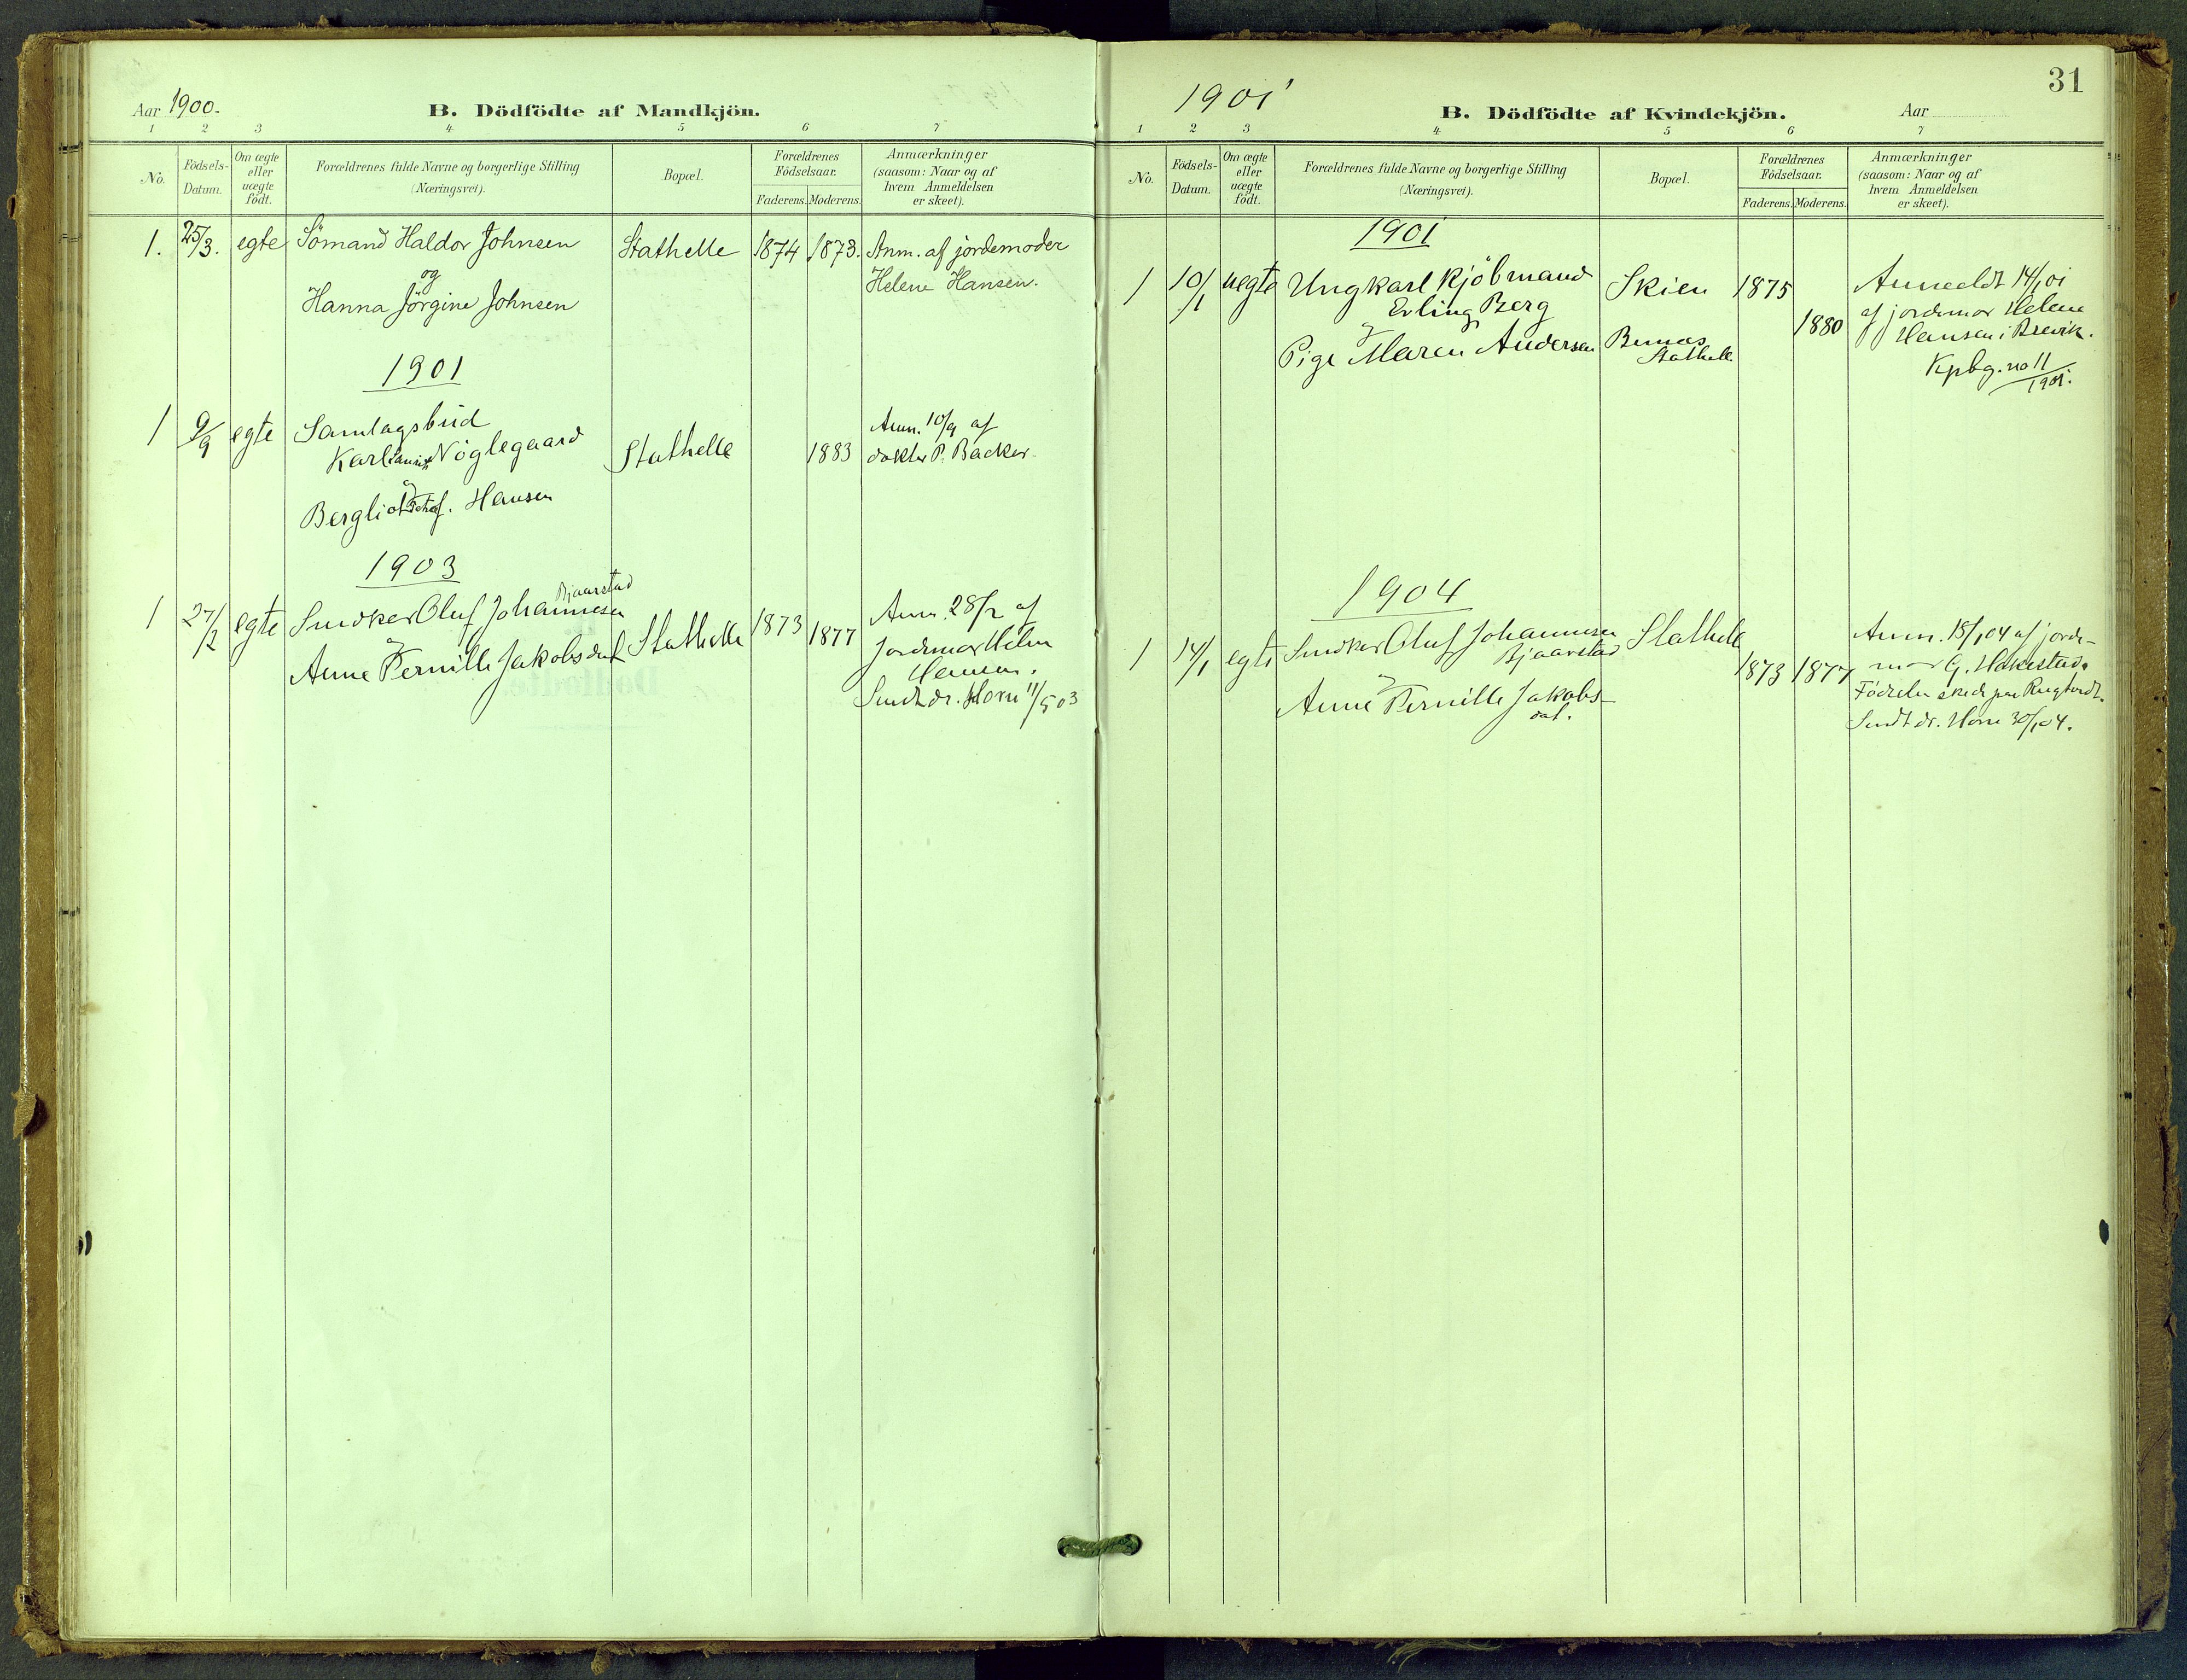 Aar 1900.
B. Dödfödte af Mandkjön.
1 2 3 4 5 6 7
No.
Födsels-
Datum.
Om ægte
eller
uægte
födt.
Forældrenes fulde Navne og borgerlige Stilling
(Næringsvei).
Bopæl.
Forældrenes
Födselsaar.
Faderens. Moderens.
Anmærkninger
(saasom: Naar og af
hvem Anmeldelsen
er skeet).
1. 25/3. egte Sömand Haldor Johnsen Stathelle 1874 1873. Anm. af jordemoder
og Helene Hansen.
Hanna Jörgine Johnsen
1901
1 9/9 egte Samlagsbud Anm. 10/9 af
Karl Nöglegaard Stathelle 1883 doktor P. Backer
Bergliot Hansen
1903
Bjaarstad
1 27/2 egte Snedker Oluf Johannesen Stathelle 1873 1877 Anm. 28/2 af
og jordemor Helene
Anne Pernille Jakobsdat Hansen.
Sendt dr. Horn 11/5 03
31
1901
B. Dödfödte af Kvindekjön.
Aar
1 2 3 4 5 6 7
No.
Födsels-
Datum.
Om ægte
eller
uægte
födt.
Forældrenes fulde Navne og borgerlige Stilling
(Næringsvei).
Bopæl.
Forældrenes
Födselsaar.
Faderens. Moderens.
Anmærkninger
(saasom: Naar og af
hvem Anmeldelsen
er skeet).
1901
1 10/1 uegte Ungkarl Kjöbmand Skien 1875 Anmeldt 14/1 01
Erling Berg 1880 af jordemor Helene
og Hansen i Brevik.
Pige Maren Andersen Stathelle Kpbg. no 11
1901.
1904
1 14/1 egte Snedker Oluf Johannesen Stathelle 1873 1877 Anm. 18/1 04 af jorde-
Bjaarstad mor G. Hakestad.
og Födselen skede paa
Anne Pernille Jakobs- Sendt dr. Horn 30/1 04.
dat.